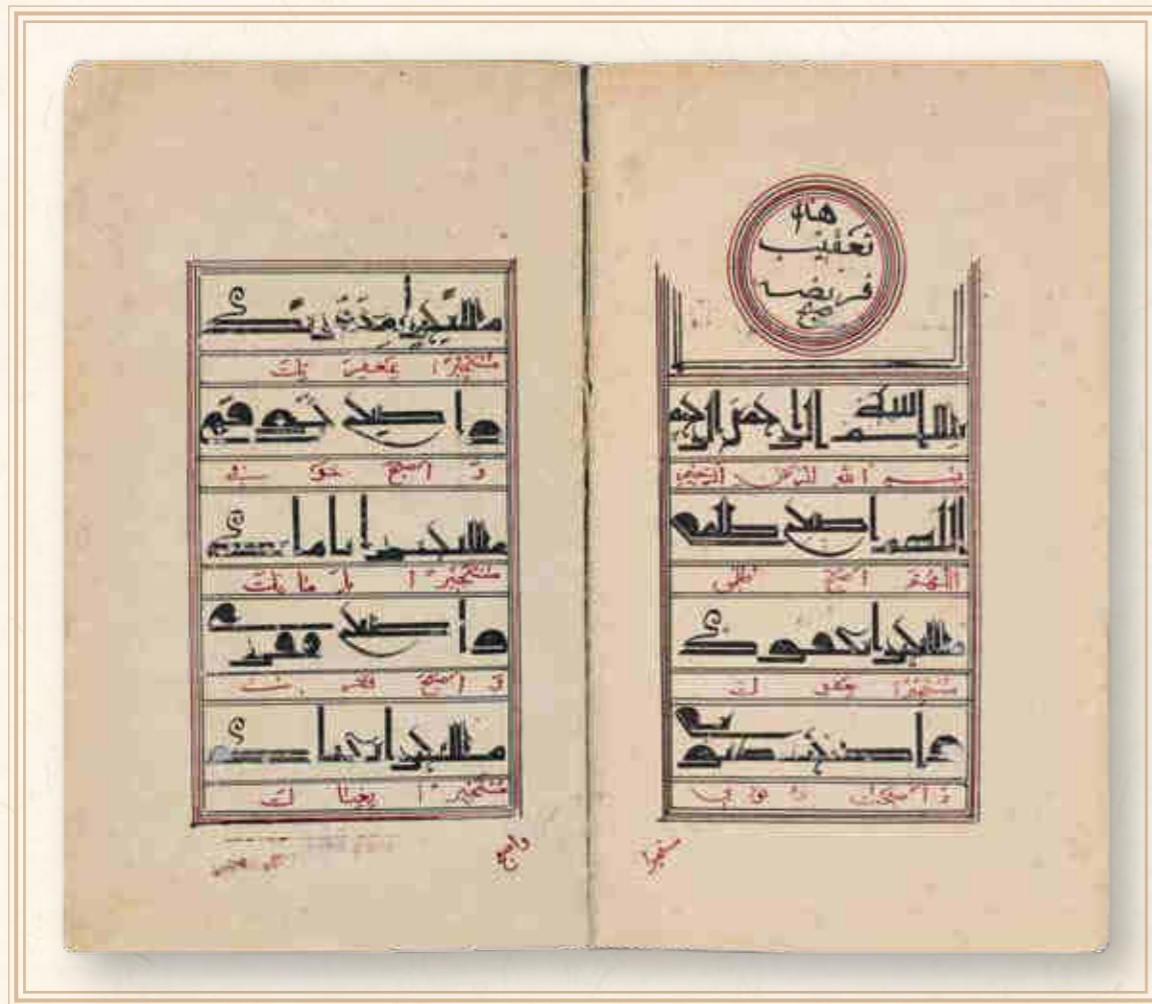 هذا
تعقیب
فریضه
صبح
بسم الله الرحمن الرحيم
بسم الله الرحمن الرحيم
اللهم اصبح ظلمي
اللهم اصبح ظلمي
مستجيرا بعفوك
مستجيرا بعفوك
واصبحت ذنوبي
واصبحت ذنوبي
مستجيرا
مستجيرا بمغفرتك
مستجيرا بمغفرتك
واصبح خوفي
واصبح خوفي
مستجيرا بامانك
مستجيرا بامانك
واصبح فقري
واصبح فقري
مستجيرا بغناك
مستجيرا بغناك
واصبح